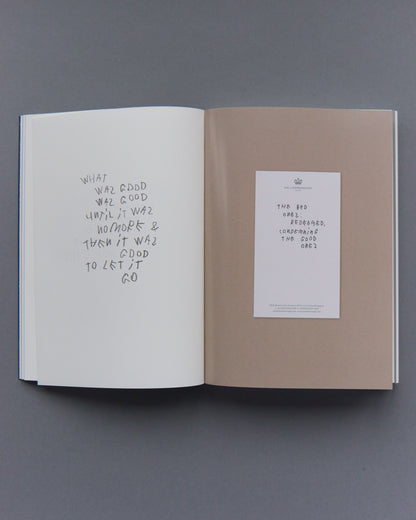 WHAT
WAS GOOD
WAS GOOD
UNTIL IT WAS
NOMORE &
THEN IT WAS
GOOD
TO LET IT
GO
THE BED
ONES
REDEEMED,
CONDEMNING
THE GOOD
ONES